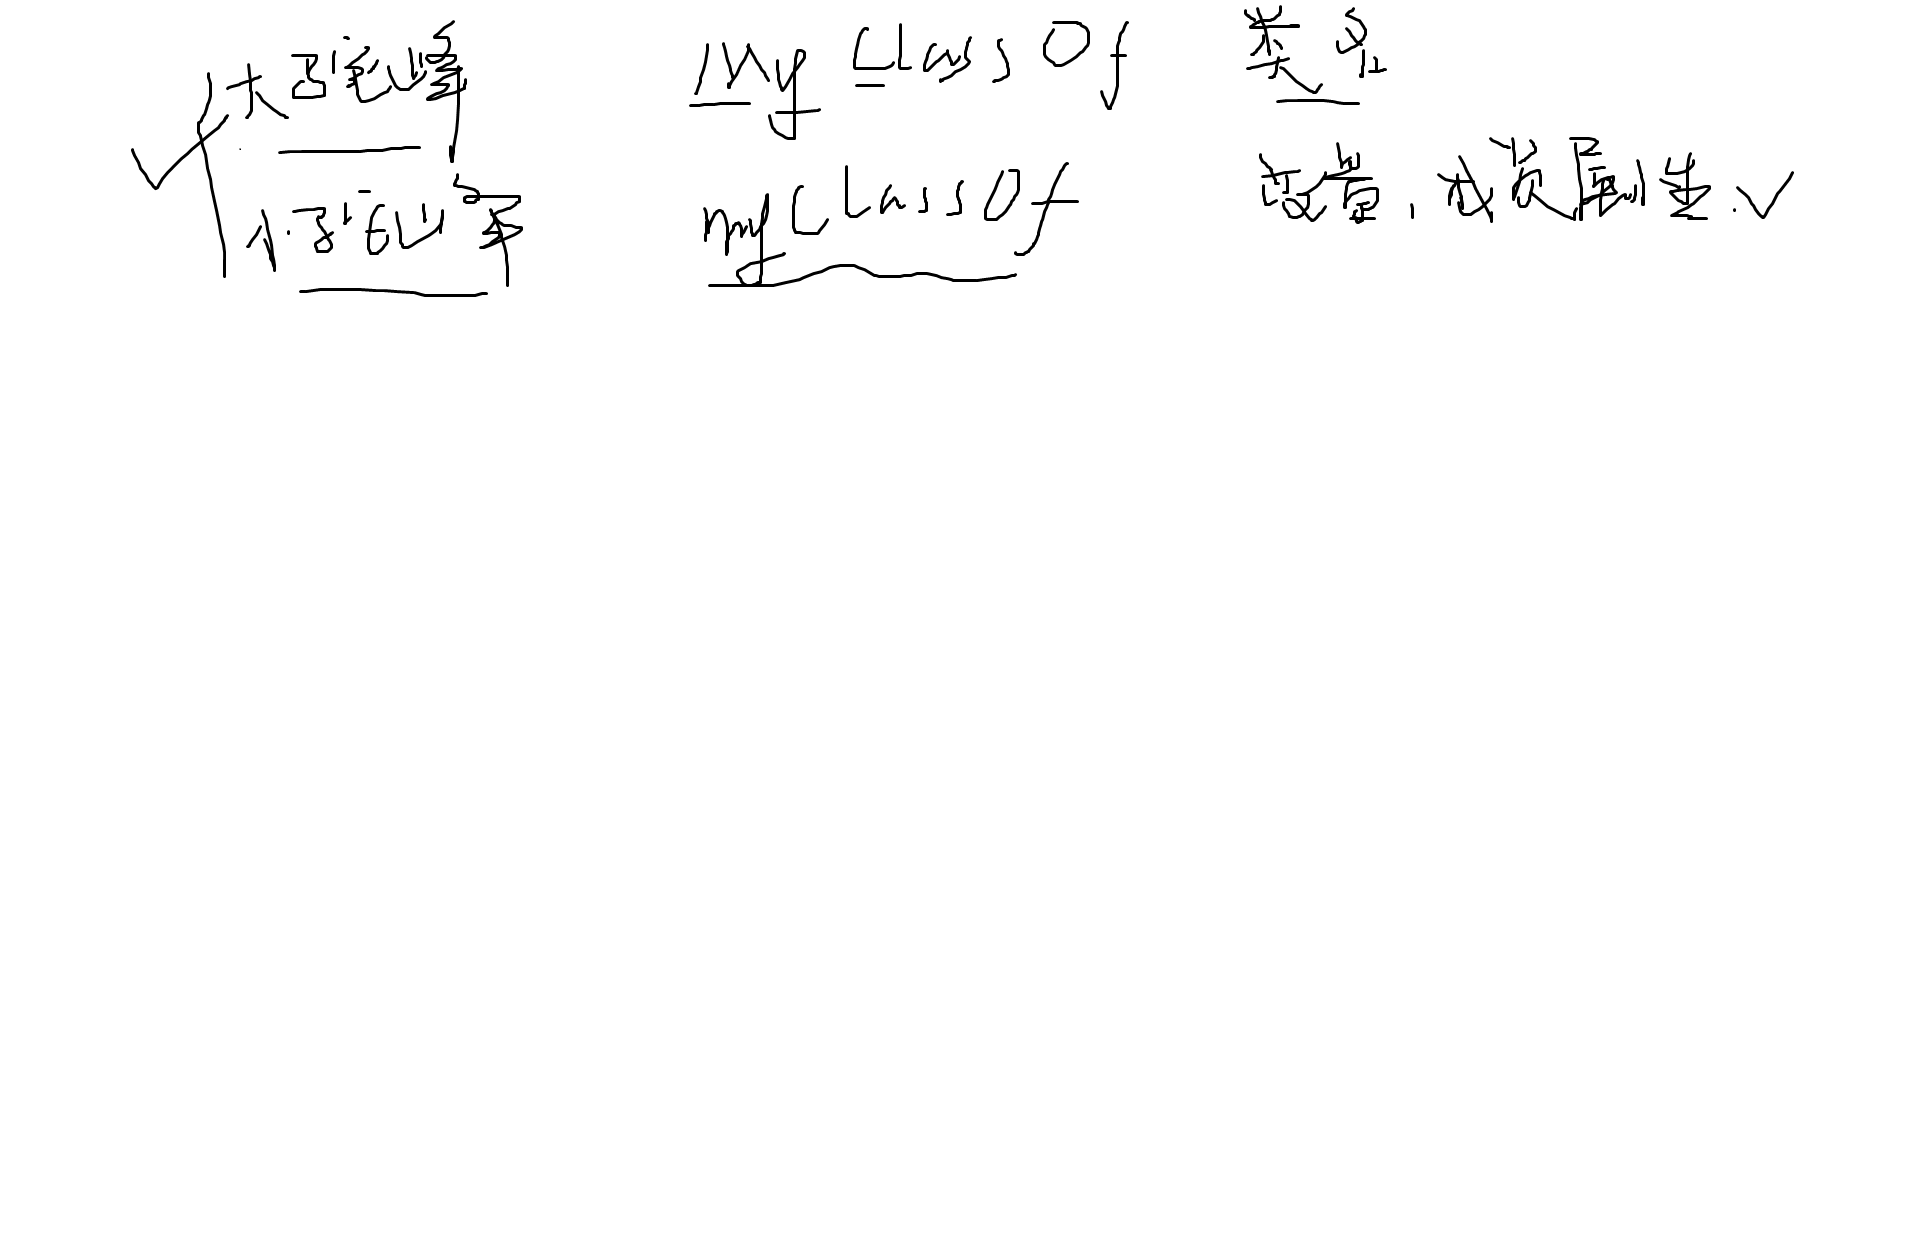 大驼峰 MyClassOf 类名
小驼峰 myClassOf 变量,成员属性.